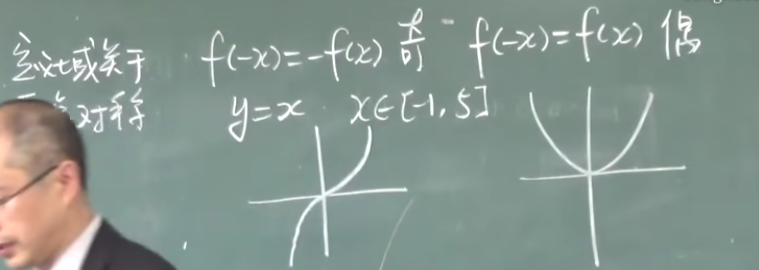 定义域关于 f(-x)=-f(x) 奇 f(-x)=f(x) 偶
对称 y=x x∈[-1,5]